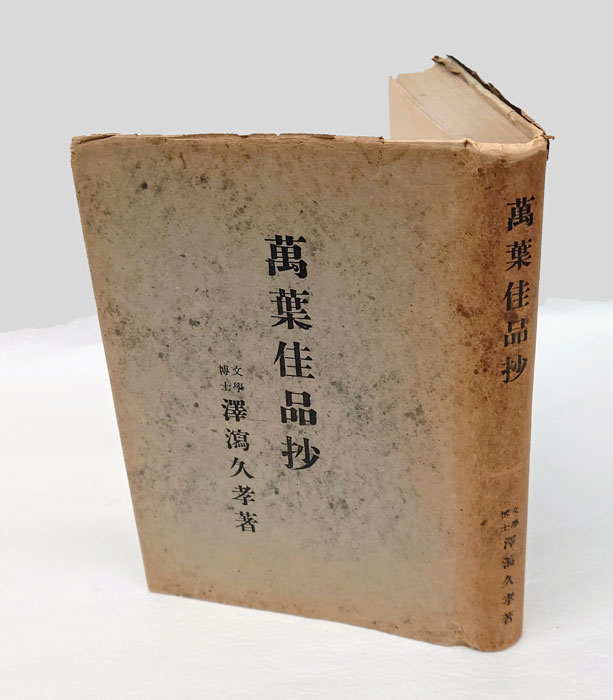 萬葉佳品抄
文學博士 澤瀉久孝著
萬葉佳品抄
文學博士 澤瀉久孝著